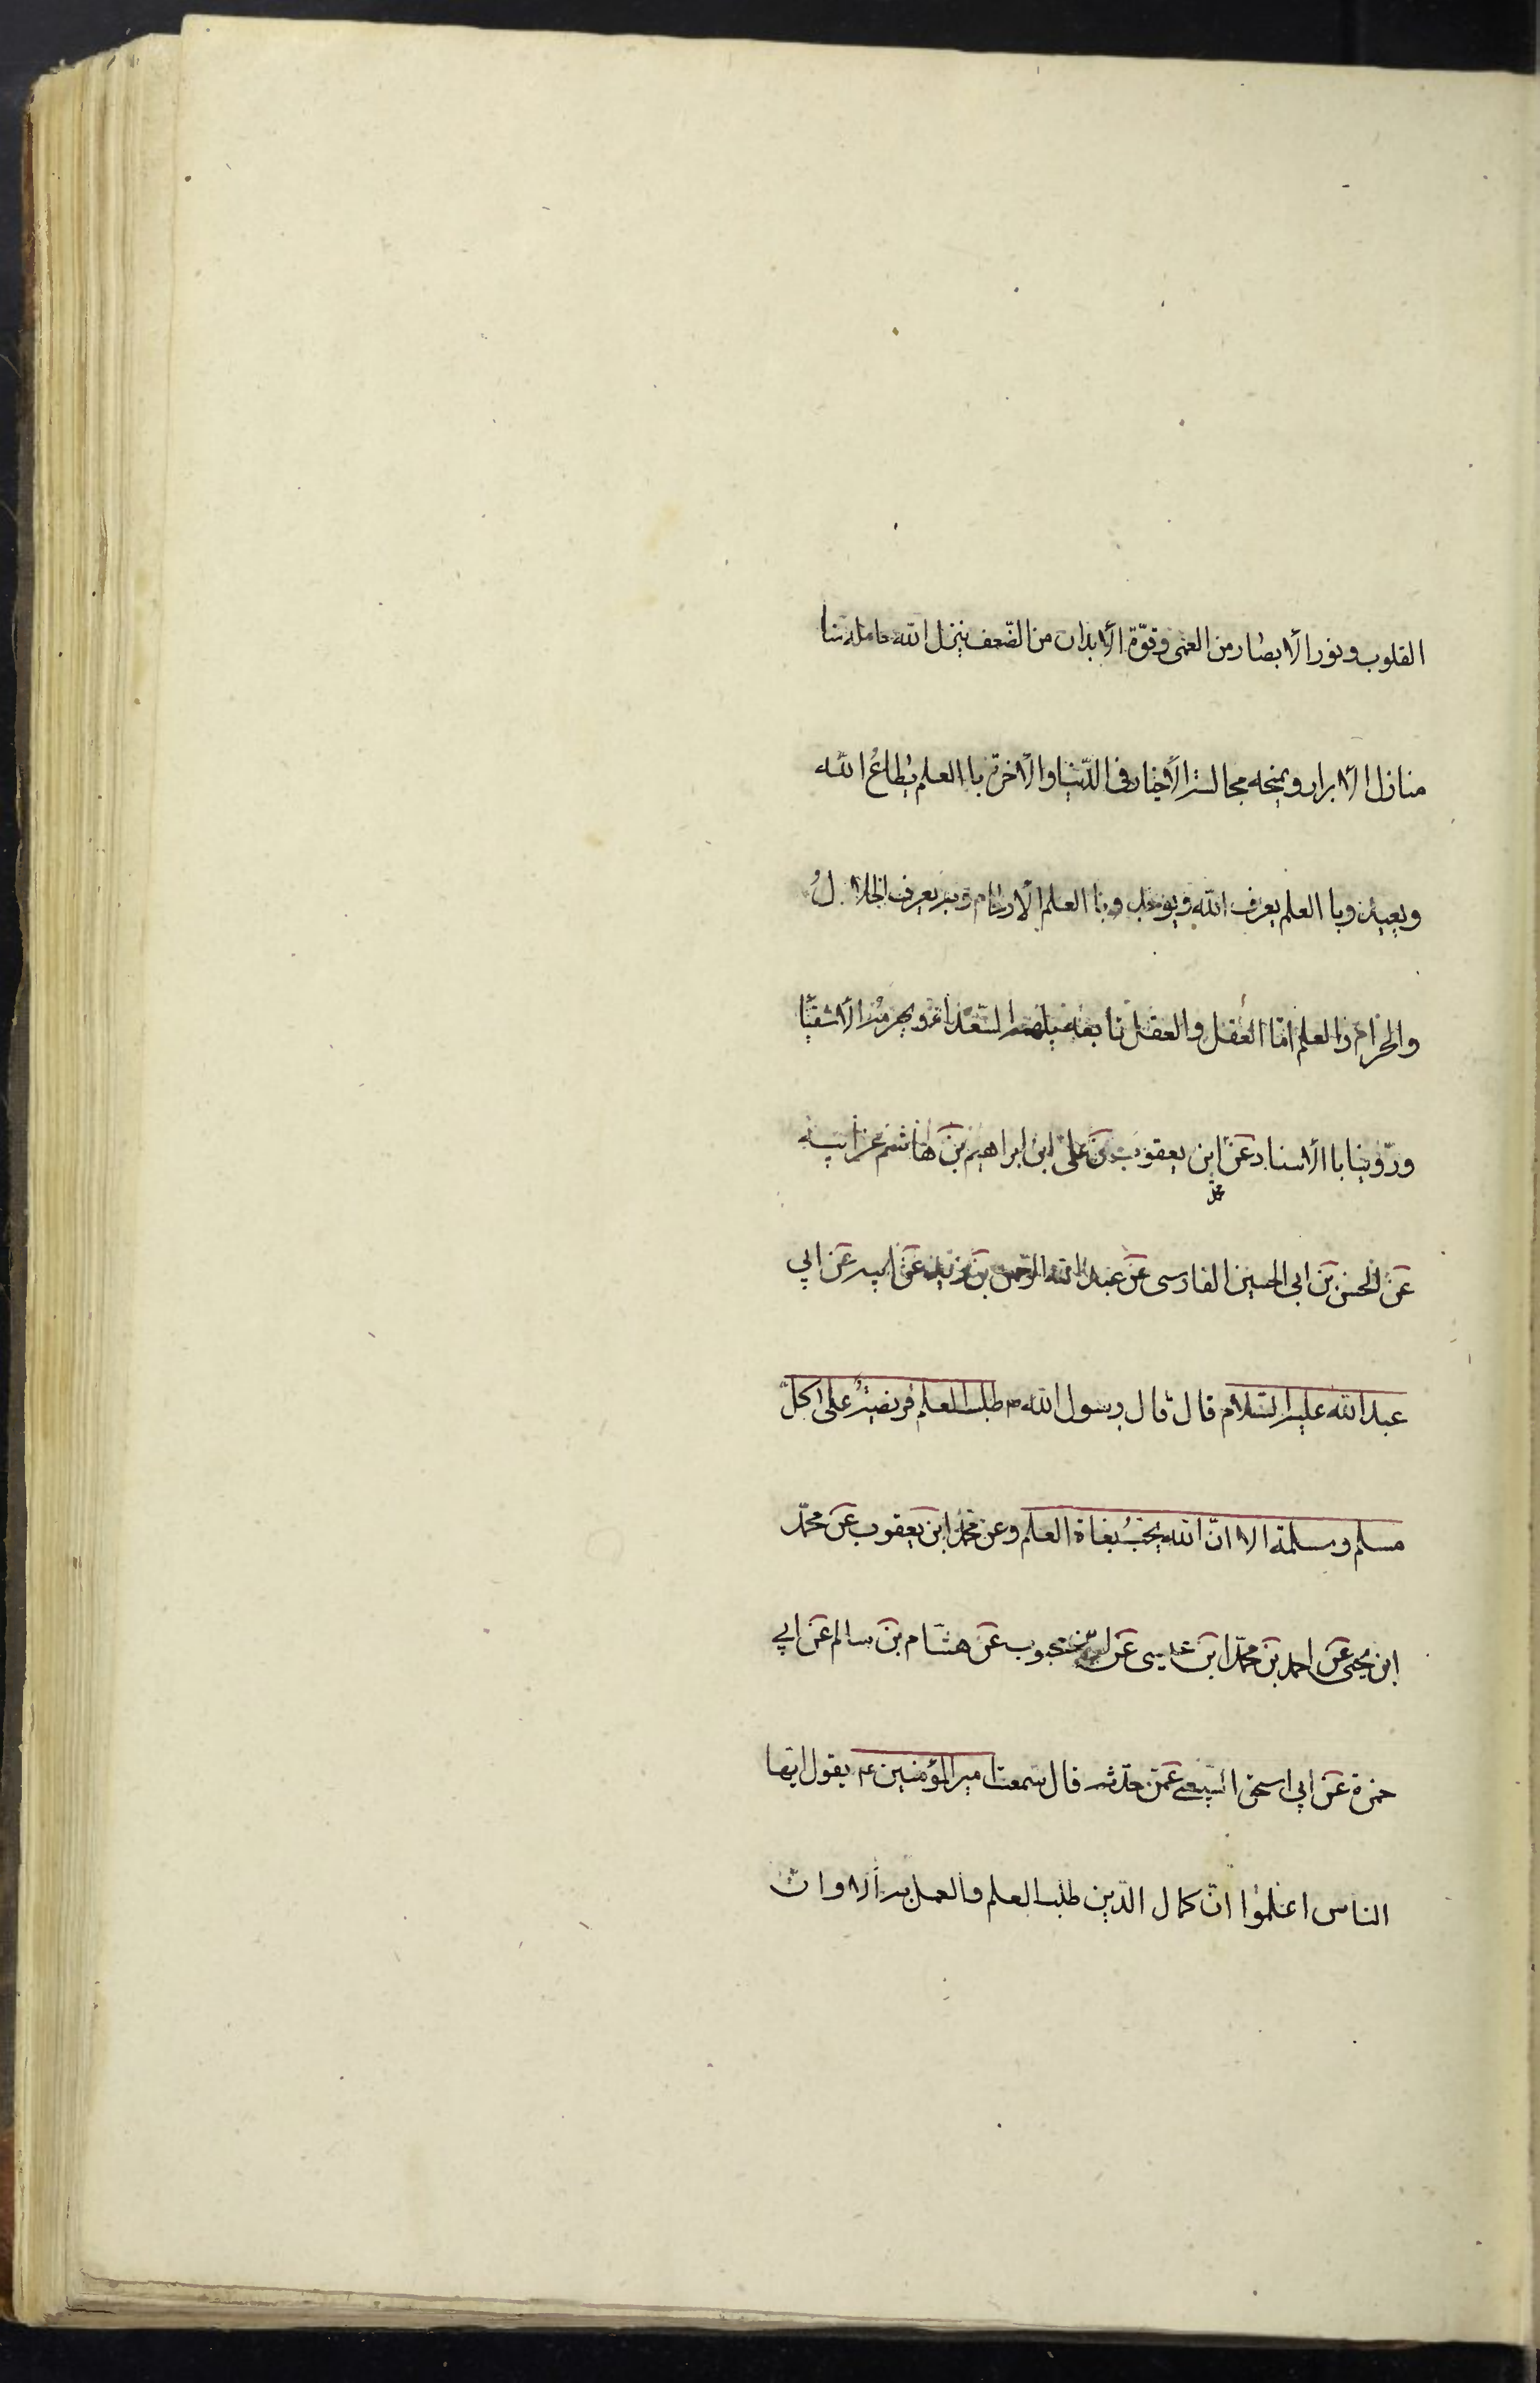 القلوب ونور الأبصار من العمى وقوّة الأبدان من الضّعف ينزل الله حامله
منازل الأبرار ويمنحه مجالسة الأخيار فى الدّنيا والآخرة باالعلم يُطاعُ الله
ويعبد وباالعلم يعرف الله ويوحد وباالعلم الأرحام وبه يعرف الحلالُ
والحرام والعلم امام العقل والعقل تابعه يلهمه السّعداء ويحرمه الأشقيا
وروّينا باالأسناد عَن ابن يعقوب عن على ابن ابراهيم بن هاشم عن ابيه
محمّد
عَن الحسن بَن ابى الحسين الفارسى عَن عبد الرّحمن بن زيد عَن ابيه عَن ابي
عبد الله عليه السّلام قال قال رسول الله ص طلب العلم فريضةٌ على كلّ
مسلم ومسلمة الا انّ الله يحبُّ بغاة العلم وعن محمّد ابن يعقوب عَن محمّد
ابن يحيى عَن احمد بَن محمّد ابَن عيسى عَن محبوب عَن هشام بَن سالم عَن ابي
حمزة عَن ابي اسحق السّبيعى عمّن حدّثه قال سمعت امير المؤمنين ع يقول ايّها
الناس اعلموا انّ كمال الدّين طلب العلم والعمل به ألا وانّ